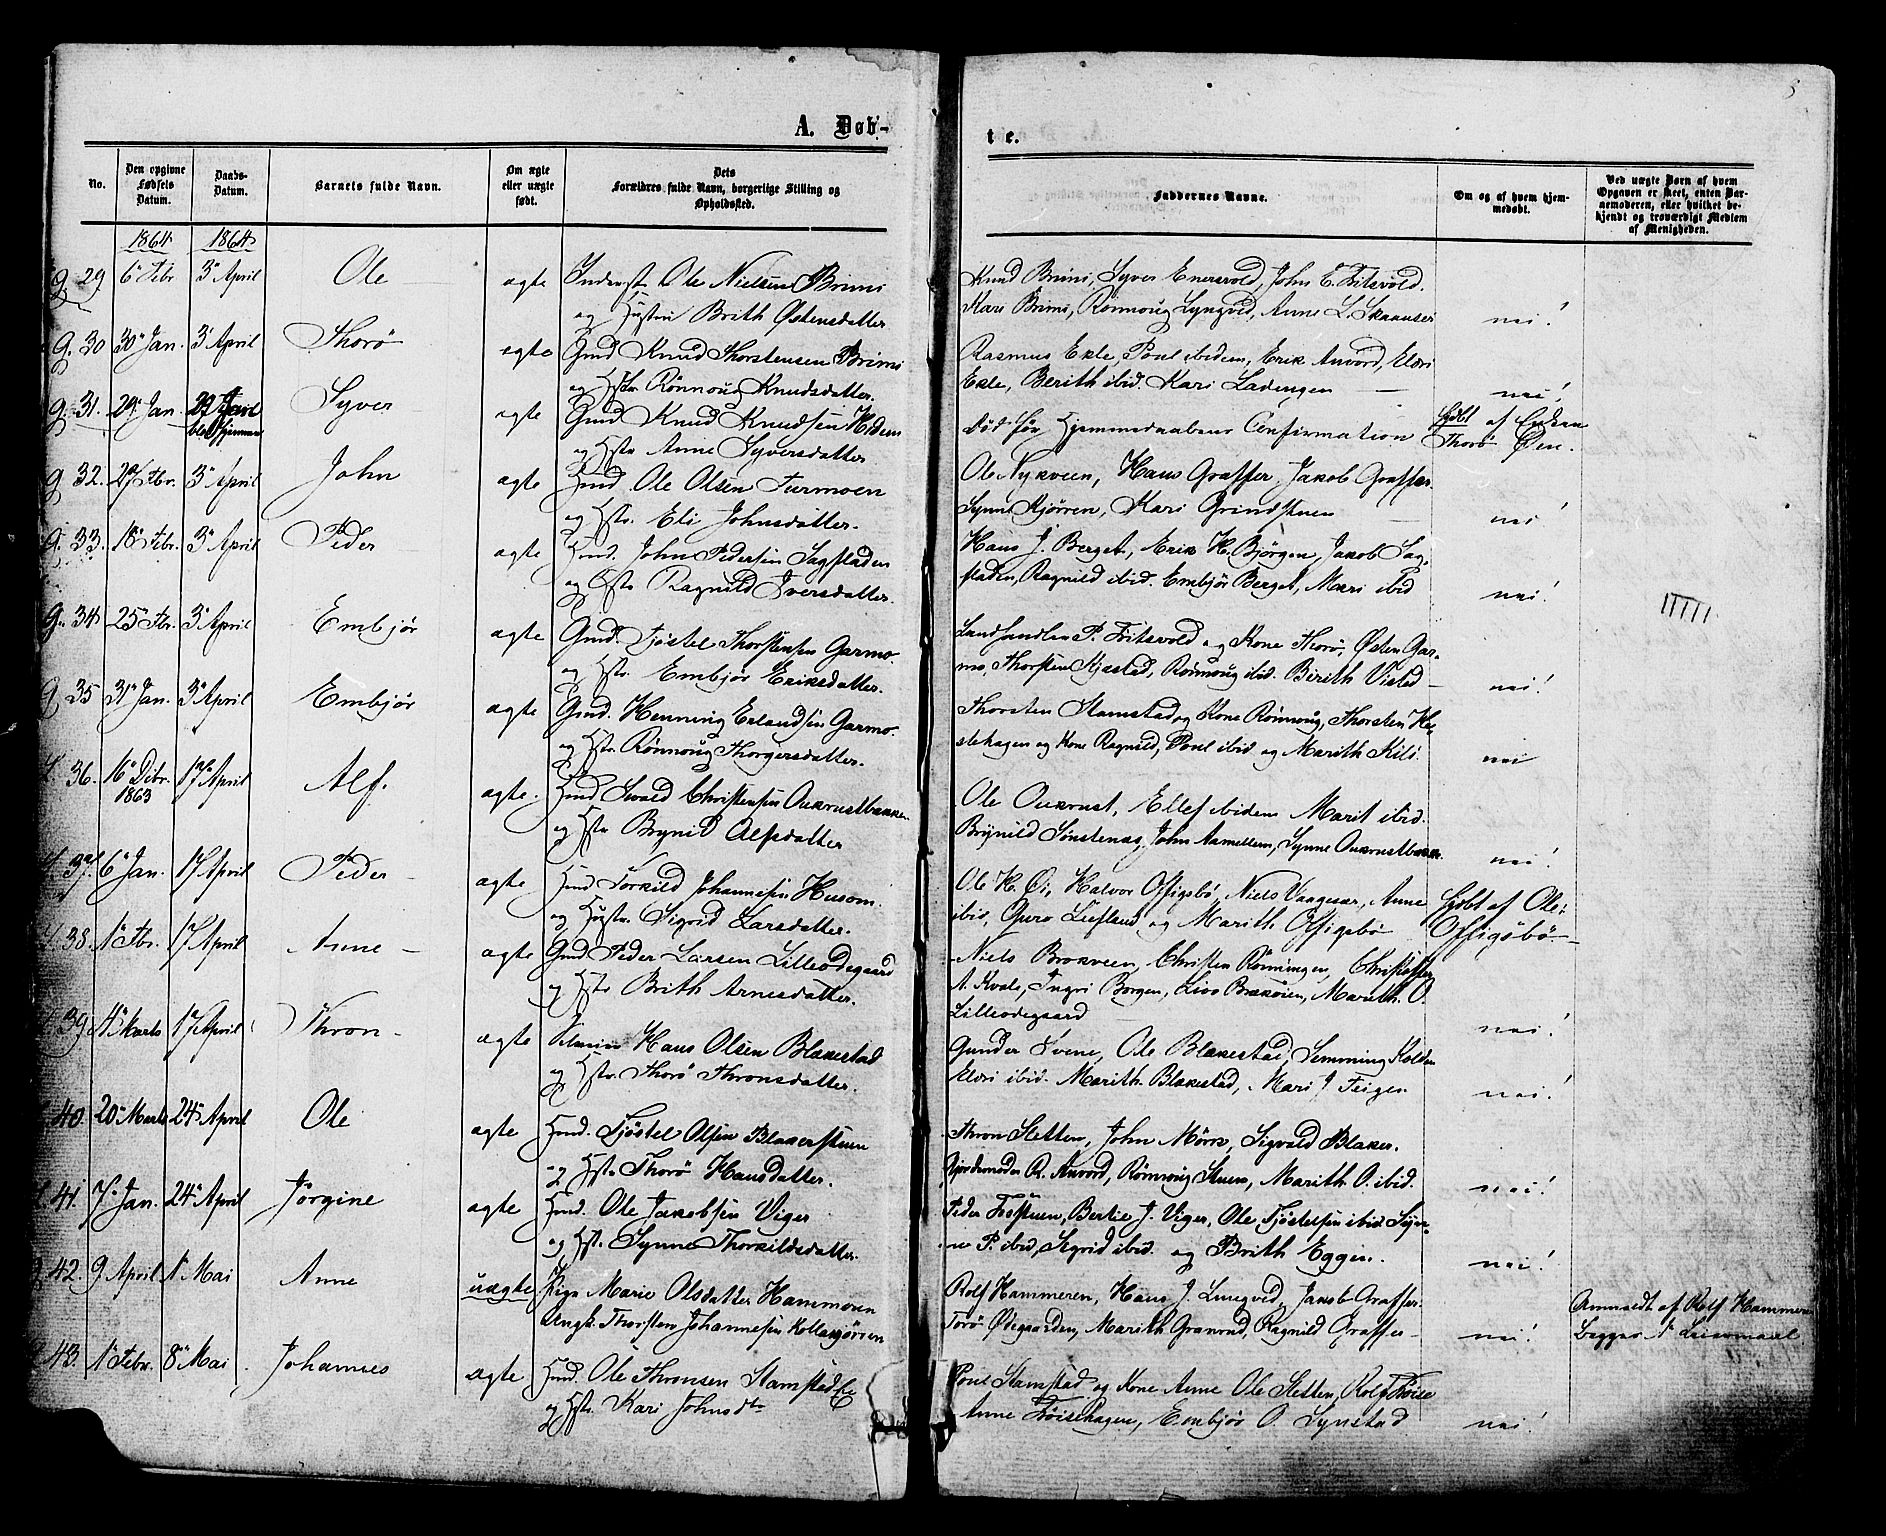 5
A. Døb-
t e.
No.
Den opgivne Fødsels Datum.
Daabs-Datum.
Barnets fulde Navn.
Om ægte eller uægte født.
Dets Forældres fulde Navn, borgerlige Stilling og Opholdssted.
Faddernes Navne.
Om og af hvem hjemmedøbt.
Ved uægte Børn af hvem Opgaven er skeet, enten Barnemoderen, eller hvilket bekjendt og troværdigt Medlem af Menigheden.
1864 1864
G 29 6 Febr 3 April Ole ægte Inderst Ole Nielsen Brimi
og Hustru Brith Østensdatter
Knud Brimi, Syver Enersvold, John E. Fritsvold.
Kari Brimi, Rønnoug Lyngved, Anne L. nei!
G. 30 30 Jan. 3 April Thorø ægte Gmd Knud Thorstensen Brimi
og Hstr Rønnoug Knudsdatter.
Rasmus Ekle, Poul ibidem, Erik Anvord,
Ekle, Berith ibid. Kari Ladengen nei!
G. 31. 29 Jan Syver ægte Gmd Knud Knudsen
og Hstr Anne Syversdatter
Død før Hjemmedaabens Confirmation
hjdbt af Enken
Thorø Øen.
G 32. 27 Febr. 3 April John ægte Hmd Ole Olsen Turmoen
og Hstr. Eli Johnsdatter.
Ole Nykveen, Hans Graffer, Jakob Graffer.
Synne Kjørren, Kari Grindstuen nei!
G. 33. 18 Febr. 3 April Peder ægte Hmd. John Pedersen Sagstaden
og Hstr Ragnild Iversdatter.
Hans J. Berget, Erik H. Bjørgen, Jakob Sag-
staden, Ragnild ibid. Embjør Berget, Mari ibid nei!
G. 34 25 Febr. 3 April Embjør ægte Gmd. Tjøstel Thorstensen Garmo.
og Hstr. Embjør Eriksdatter.
Landhandler P. Fritsvold og Kone Thorø, Østen Gar-
mo, Thorsten Kjæstad, Rønnoug ibid. Birith Visted nei!
G 35 31 Jan. 3 April Embjør ægte Gmd. Henning Erlandsen Garmo.
og Hstr. Rønnoug Thorgersdatter.
Thorsten Stamstad og Kone Rønnoug, Thorsten He-
stehagen og Kone Ragnild, Poul ibid og Marith Kili. nei
36. 16 Debr. 1863 17 April Alf. ægte. Hmd Sivald Christensen Aukrustbakken
og Hstr Brynild Alfsdatter
Ole Aukrust, Ellef ibidem Marit ibid.
Brynild Sønstenæs, John Aamellem, Synne Aukrustbakk. nei!
37. 6 Jan. 17 April Peder ægte Hmd Torkild Johannesen Husom.
og Hustr. Sigrid Larsdatter.
Ole H. Øi, Halvor Offigsbø, Niels Vaagesar, Anne
ibid, Guro Liefland og Marith Offigsbø
hjdbt af Ole
Offigsbø
38. 1 Febr. 17 April Anne ægte Gmd Peder Larsen Lilleødegaard
og Hstr Brith Arnesdatter.
Niels Brokveen, Christen Rønningen, Christoffer
A. Kvale, Ingri Borgen, Livø Marith. O.
Lilleødegaard nei!
39 4 Marts 17 April Thron ægte Hans Olsen Blakestad
og Hstr. Thorø Thronsdatter.
Gunder Svene, Ole Blakestad, Semming Kolden
ibid. Marith Blakestad, Mari J Teigen nei!
40. 20 Marts 24 April Ole ægte Hmd. Tjøstel Olsen Blakerstuen
og Hstr Thorø Hansdatter.
Thron Sletten, John Mørk, Sigvald Blaker.
Gjordemoder R. Anvord, Rønnoug Stuen, Marith O. ibid. nei!
41. 7 Jan. 24 April Jørgine ægte Hmd. Ole Jakobsen Viger
og Hst. Synne Thorkildsdatter.
Peder Bertie J. Viger, Ole Tjøstelsen ibid Syn-
ne P. ibid, Sigrid ibid. og Brith Eggen. nei!
42. 9 April 1 Mai Anne uægte Pige Marie Olsdatter Hammeren
Ungk. Thorsten Johannesen Kollakjørren
Rolf Hammeren, Hans J. Lyngved, Jakob Graffer.
Torø Ødegaarden, Marith Granrud, Ragnild Graffer nei!
Anmeldt af Rolf Hammeren
Begges 1 Leiermaal
43. 1 Febr. 8 Mai Johannes ægte Hmd. Ole Thronsen Stamstad
og Hstr Kari Johnsdtr
Poul Stamstad og Kone Anne Ole Sletten, Rolf
Anne Embjør O. Synstad nei!